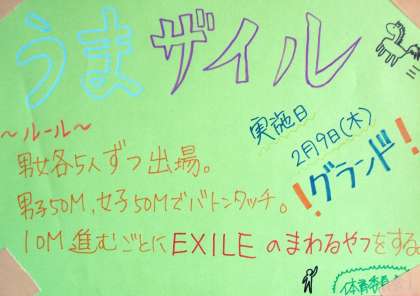 うまザイル
実施日
2月9日(木)
〜ルール〜
男女各5人ずつ出場。
!グランド!
男子50M、女子50Mでバトンタッチ。
10M進むごとにEXILEのまわるやつをする。
体育委員